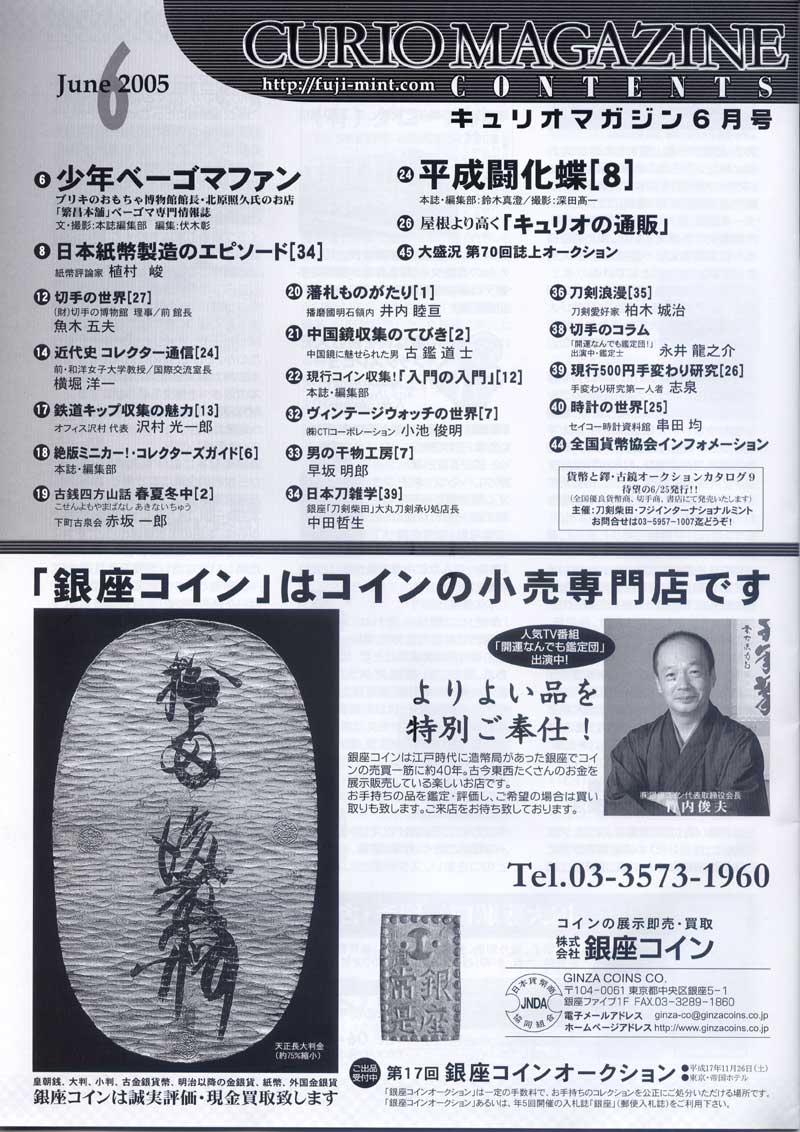 CURIO MAGAZINE
June 2005
6
http://fuji-mint.com CONTENTS
キュリオマガジン6月号
6 少年ベーゴマファン
ブリキのおもちゃ博物館館長・北原照久氏のお店
「繁昌本舗」ベーゴマ専門情報誌
文・撮影:本誌編集部 編集:伏木彰
8 日本紙幣製造のエピソード[34]
紙幣評論家 植村 峻
12 切手の世界[27]
(財)切手の博物館 理事/前 館長
魚木 五夫
14 近代史 コレクター通信[24]
前・和洋女子大学教授/国際交流室長
横堀 洋一
17 鉄道キップ収集の魅力[13]
オフィス沢村 代表 沢村 光一郎
18 絶版ミニカー!・コレクターズガイド[6]
本誌・編集部
19 古銭四方山話 春夏冬中[2]
こせんよもやまばなし あきないちゅう
下町古泉会 赤坂 一郎
24 平成闘化蝶[8]
本誌・編集部:鈴木真澄/撮影:深田高一
26 屋根より高く「キュリオの通販」
45 大盛況 第70回誌上オークション
20 藩札ものがたり[1]
播磨國明石領内 井内 睦亘
21 中国鏡収集のてびき[2]
中国鏡に魅せられた男 古 鑑 道 士
22 現行コイン収集!「入門の入門」[12]
本誌・編集部
32 ヴィンテージウォッチの世界[7]
㈱CTIコーポレーション 小池 俊明
33 男の干物工房[7]
早坂 明郎
34 日本刀雑学[39]
銀座「刀剣柴田」大丸刀剣承り処店長
中田哲生
36 刀剣浪漫[35]
刀剣愛好家 柏木 城治
38 切手のコラム
「開運なんでも鑑定団!」
出演中・鑑定士 永井 龍之介
39 現行500円手変わり研究[26]
手変わり研究第一人者 志泉
40 時計の世界[25]
セイコー時計資料館 串田 均
44 全国貨幣協会インフォメーション
貨幣と鐸・古鏡オークションカタログ9
待望の6/25発行!!
(全国優良貨幣商、切手商、書店にて発売いたします)
主催:刀剣柴田・フジインターナショナルミント
お問合せは03-5957-1007迄どうぞ!
「銀座コイン」はコインの小売専門店です
人気TV番組
「開運なんでも鑑定団」
出演中!
よりよい品を
特別ご奉仕!
銀座コインは江戸時代に造幣局があった銀座でコイ
ンの売買一筋に約40年。古今東西たくさんのお金を
展示販売している楽しいお店です。
お手持ちの品を鑑定・評価し、ご希望の場合は買い
取りも致します。ご来店をお待ち致しております。
㈱銀座コイン代表取締役会長
竹内俊夫
Tel.03-3573-1960
コインの展示即売・買取
株式会社 銀座コイン
日本貨幣商協同組合
JNDA
GINZA COINS CO.
〒104-0061 東京都中央区銀座5-1
銀座ファイブ1F FAX.03-3289-1860
電子メールアドレス ginza-co@ginzacoins.co.jp
ホームページアドレス http://www.ginzacoins.co.jp
銀座
常是
天正長大判金
(約75%縮小)
皇朝銭、大判、小判、古金銀貨幣、明治以降の金銀貨、紙幣、外国金銀貨
銀座コインは誠実評価・現金買取致します
ご出品受付中
第17回 銀座コインオークション
●平成17年11月26日(土)
●東京・帝国ホテル
「銀座コインオークション」は一定の手数料で、お手持ちのコレクションを公正にご処分いただける場所です。
「銀座コインオークション」あるいは、年5回開催の入札誌「銀座」(郵便入札誌)をご利用下さい。